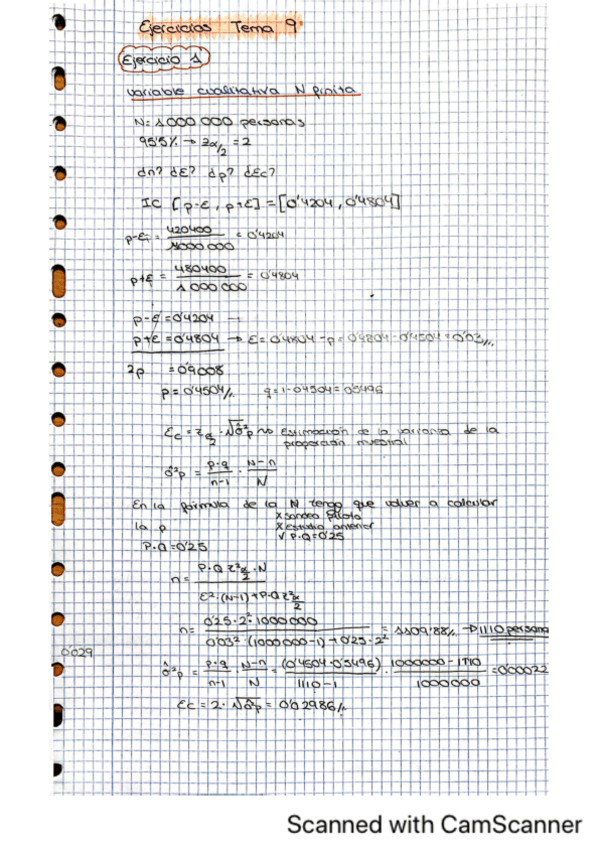 Ejercicios Tema 9
Ejercicio 1
Variable cualitativa N finita
N= 1000 000 personas
95'5% → zα/2 = 2
dn? dE? dp? dEc?
IC [p-ε, p+ε] = [0'4204, 0'4804]
p-ε = 420400 / 1000 000 = 0'4204
p+ε = 480400 / 1 000 000 = 0'4804
p-ε = 0'4204 →
p+ε = 0'4804 → ε = 0'4804 - p = 0'4804 - 0'4504 = 0'03
2p = 0'9008
p = 0'4504 q = 1-0'4504 = 0'5496
Ec = zα/2 · √σ̂²p → Estimación de la varianza de la
proporción muestral
σ̂²p = p·q / n-1 · N-n / N
En la fórmula de la N tengo que volver a calcular
la p
X sondeo piloto
X estudio anterior
√ P·Q=0'25
P·Q = 0'25
n = P·Q z²α/2 · N / ε²·(N-1)+P·Q z²α/2
n = 0'25·2²·1000000 / 0'03²·(1000000-1)+0'25·2² = 1109'88 → 1110 persona
0'029
σ̂²p = p·q / n-1 · N-n / N = (0'4504·0'5496) / 1110-1 · 1000000-1110 / 1000000 = 0'00022
Ec = 2·√σ̂²p = 0'02986
Scanned with CamScanner